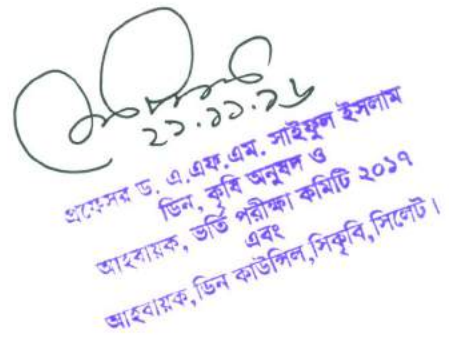 ২১.১১.১৬
প্রফেসর ড. এ.এফ.এম. সাইফুল ইসলাম
ডিন, কৃষি অনুষদ ও
আহবায়ক, ভর্তি পরীক্ষা কমিটি ২০১৭
এবং
আহবায়ক,ডিন কাউন্সিল,সিকৃবি,সিলেট।